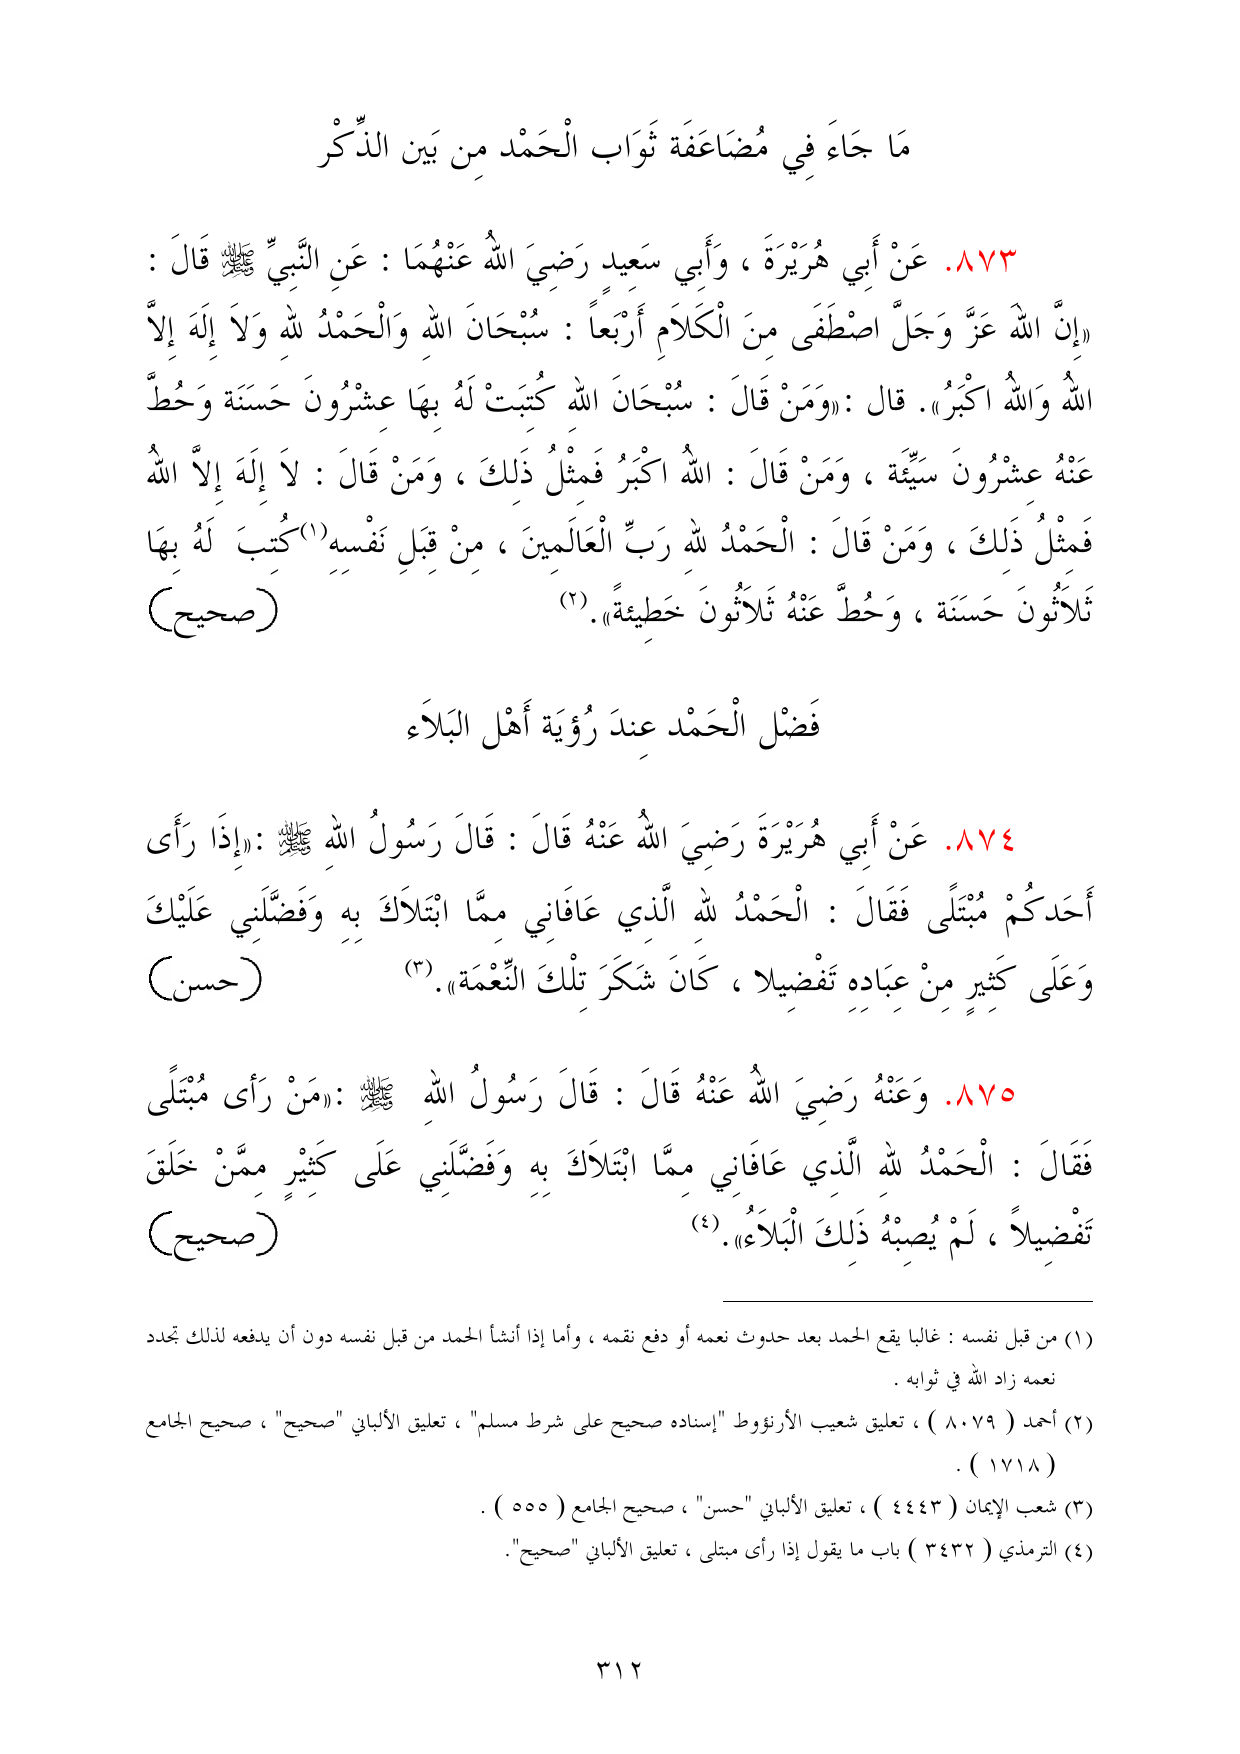 مَا جَاءَ فِي مُضَاعَفَة ثَوَاب الْحَمْد مِن بَين الذِّكْر
٨٧٣. عَنْ أَبِي هُرَيْرَةَ ، وَأَبِي سَعِيدٍ رَضِيَ اللهُ عَنْهُمَا : عَنِ النَّبِيِّ ﷺ قَالَ :
«إِنَّ اللهَ عَزَّ وَجَلَّ اصْطَفَى مِنَ الْكَلَامِ أَرْبَعاً : سُبْحَانَ اللهِ وَالْحَمْدُ للهِ وَلاَ إِلَهَ إِلاَّ
اللهُ وَاللهُ اكْبَرُ». قال :«وَمَنْ قَالَ : سُبْحَانَ اللهِ كُتِبَتْ لَهُ بِهَا عِشْرُونَ حَسَنَة وَحُطَّ
عَنْهُ عِشْرُونَ سَيِّئَة ، وَمَنْ قَالَ : اللهُ اكْبَرُ فَمِثْلُ ذَلِكَ ، وَمَنْ قَالَ : لاَ إِلَهَ إِلاَّ اللهُ
فَمِثْلُ ذَلِكَ ، وَمَنْ قَالَ : الْحَمْدُ للهِ رَبِّ الْعَالَمِينَ ، مِنْ قِبَلِ نَفْسِهِ(١)كُتِبَ لَهُ بِهَا
ثَلاَثُونَ حَسَنَة ، وَحُطَّ عَنْهُ ثَلاَثُونَ خَطِيئةً».(٢) (صحيح)
فَضْل الْحَمْد عِندَ رُؤيَة أَهْل البَلاَء
٨٧٤. عَنْ أَبِي هُرَيْرَةَ رَضِيَ اللهُ عَنْهُ قَالَ : قَالَ رَسُولُ اللهِ ﷺ :«إِذَا رَأَى
أَحَدكُمْ مُبْتَلًى فَقَالَ : الْحَمْدُ للهِ الَّذِي عَافَانِي مِمَّا ابْتَلاَكَ بِهِ وَفَضَّلَنِي عَلَيْكَ
وَعَلَى كَثِيرٍ مِنْ عِبَادِهِ تَفْضِيلا ، كَانَ شَكَرَ تِلْكَ النِّعْمَة».(٣) (حسن)
٨٧٥. وَعَنْهُ رَضِيَ اللهُ عَنْهُ قَالَ : قَالَ رَسُولُ اللهِ ﷺ :«مَنْ رَأى مُبْتَلًى
فَقَالَ : الْحَمْدُ للهِ الَّذِي عَافَانِي مِمَّا ابْتَلاَكَ بِهِ وَفَضَّلَنِي عَلَى كَثِيْرٍ مِمَّنْ خَلَقَ
تَفْضِيلاً ، لَمْ يُصِبْهُ ذَلِكَ الْبَلاَءُ».(٤) (صحيح)
(١) من قبل نفسه : غالبا يقع الحمد بعد حدوث نعمه أو دفع نقمه ، وأما إذا أنشأ الحمد من قبل نفسه دون أن يدفعه لذلك تجدد
نعمه زاد الله في ثوابه .
(٢) أحمد ( ٨٠٧٩ ) ، تعليق شعيب الأرنؤوط "إسناده صحيح على شرط مسلم" ، تعليق الألباني "صحيح" ، صحيح الجامع
( ١٧١٨ ) .
(٣) شعب الإيمان ( ٤٤٤٣ ) ، تعليق الألباني "حسن" ، صحيح الجامع ( ٥٥٥ ) .
(٤) الترمذي ( ٣٤٣٢ ) باب ما يقول إذا رأى مبتلى ، تعليق الألباني "صحيح".
٣١٢